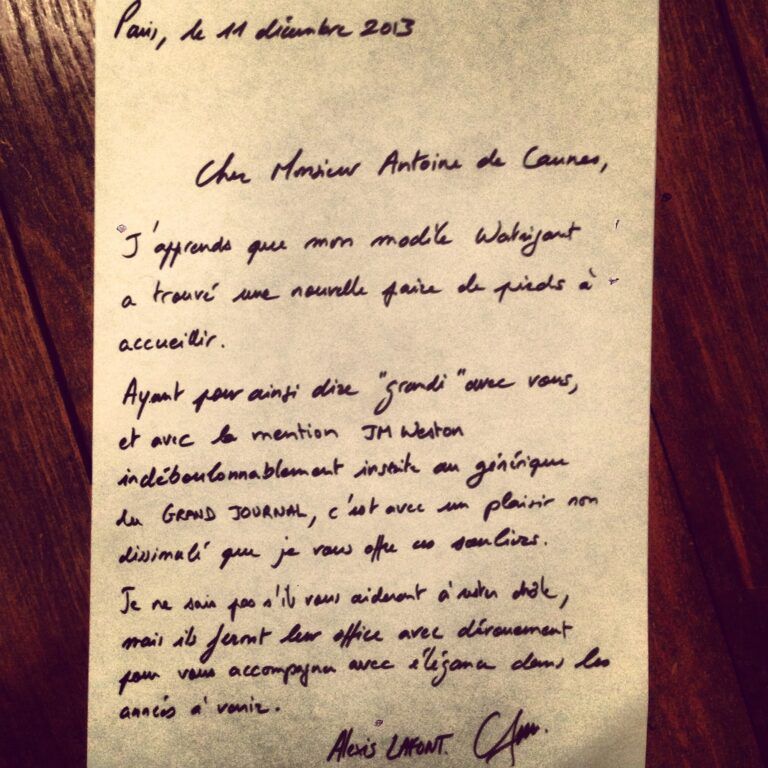 Paris, le 11 décembre 2013
Cher Monsieur Antoine de Caunes,
J'apprends que mon modèle Watrigant
a trouvé une nouvelle paire de pieds à
accueillir.
Ayant pour ainsi dire "grandi" avec vous,
et avec la mention JM Weston
indéboulonnablement inscrite au générique
du GRAND JOURNAL, c'est avec un plaisir non
dissimulé que je vous offre ces souliers.
Je ne sais pas s'ils vous aideront à rester drôle,
mais ils feront leur office avec dévouement
pour vous accompagner avec élégance dans les
années à venir.
Alexis LAFONT.